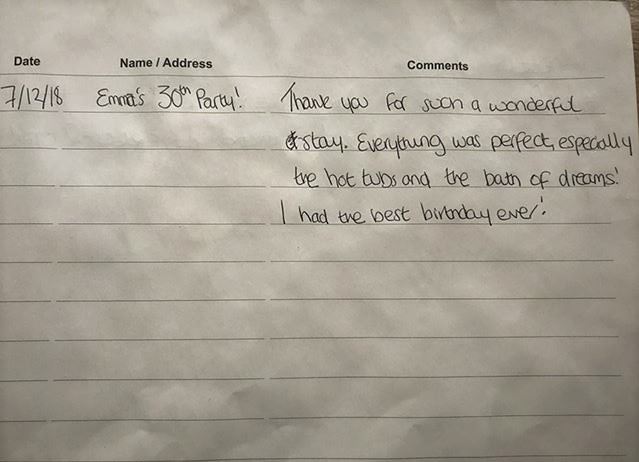 Date Name / Address Comments
7/12/18 Emma's 30th Party! Thank you for such a wonderful
stay. Everything was perfect, especially
the hot tubs and the bath of dreams!
I had the best birthday ever!